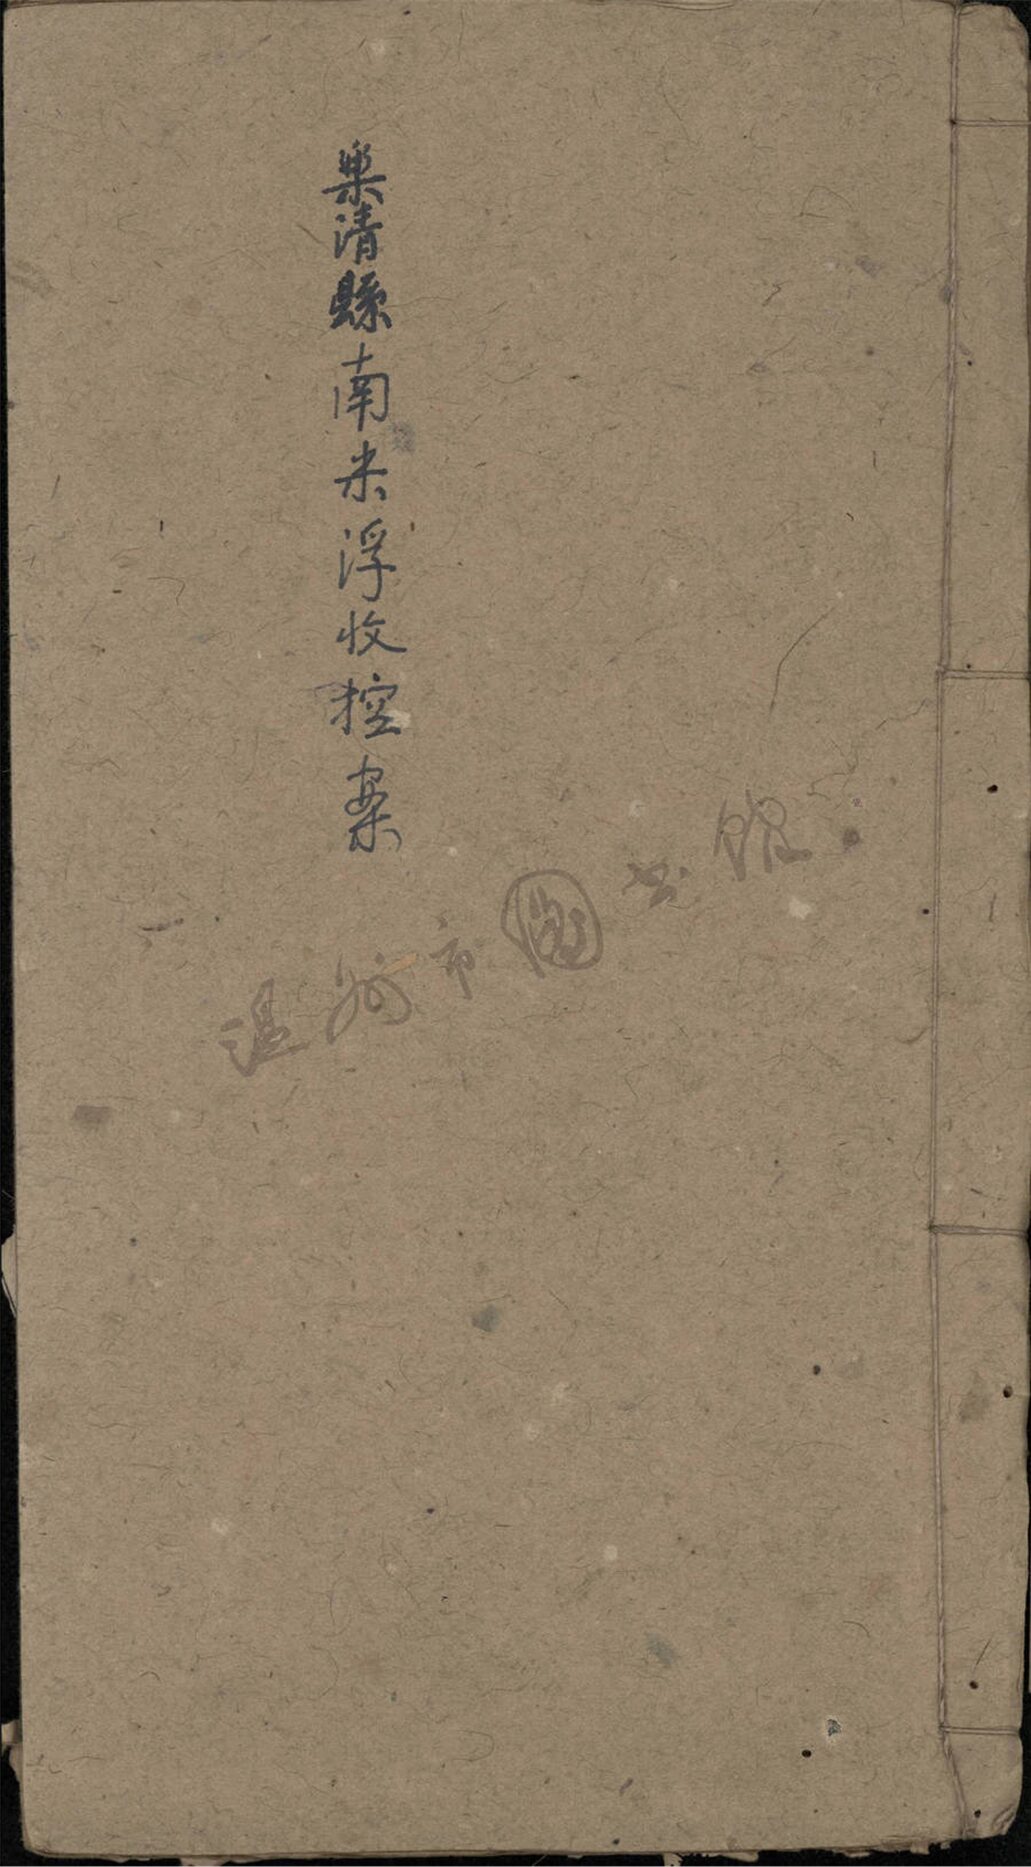 樂清縣南米浮收控案
温州市图书馆